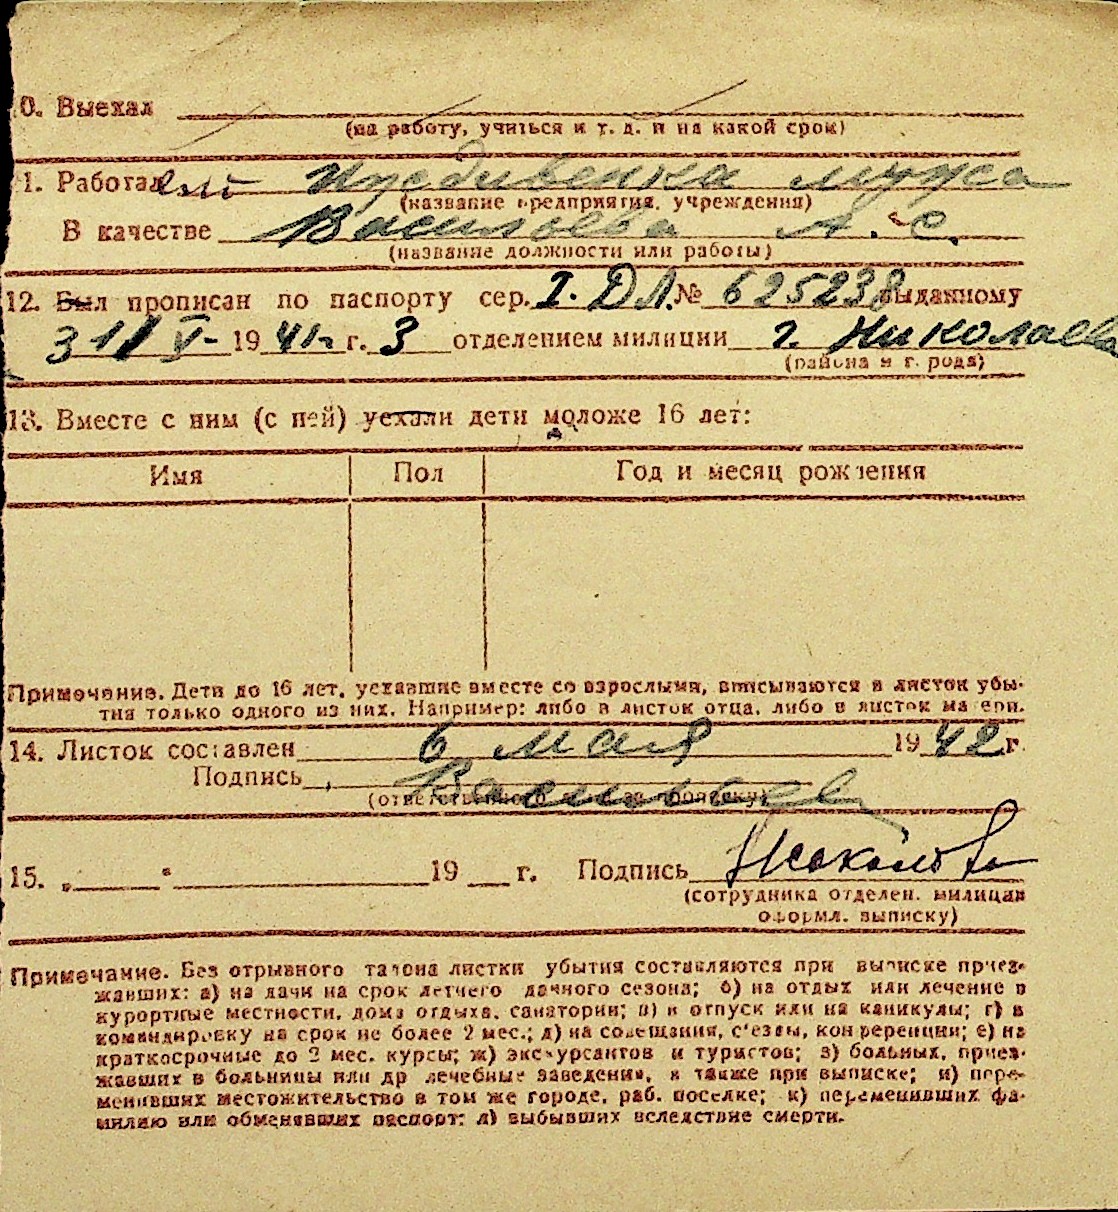 0. Выехал
(на работу, учиться и т. д. и на какой срок)
1. Работал Иждивенка мужа
(название предприятия, учреждения)
В качестве Васильева А. С.
(название должности или работы)
12. Был прописан по паспорту сер. I. ДЛ. № 625238 выданному
31 V- 1941 г. 3 отделением милиции г. Николаева
(района и города)
13. Вместе с ним (с ней) уехали дети моложе 16 лет:
Имя Пол Год и месяц рождения
Примечание. Дети до 16 лет, уехавшие вместе со взрослыми, вписываются в листок убы-
тия только одного из них. Например: либо в листок отца, либо в листок матери.
14. Листок составлен 6 мая 1942 г.
Подпись Васильева
(ответственного за прописку)
15. „ " 19 г. Подпись
(сотрудника отделен. милиции
оформл. выписку)
Примечание. Без отрывного талона листки убытия составляются при выписке приез-
жавших: а) на дачи на срок летнего дачного сезона; б) на отдых или лечение в
курортные местности, дома отдыха, санатории; в) в отпуск или на каникулы; г) в
командировку на срок не более 2 мес.; д) на совещания, съезды, конференции; е) на
краткосрочные до 2 мес. курсы; ж) экскурсантов и туристов; з) больных, приез-
жавших в больницы или др лечебные заведения, а также при выписке; и) пере-
менивших местожительство в том же городе, раб. поселке; к) переменивших фа-
милию или обменявших паспорт; л) выбывших вследствие смерти.